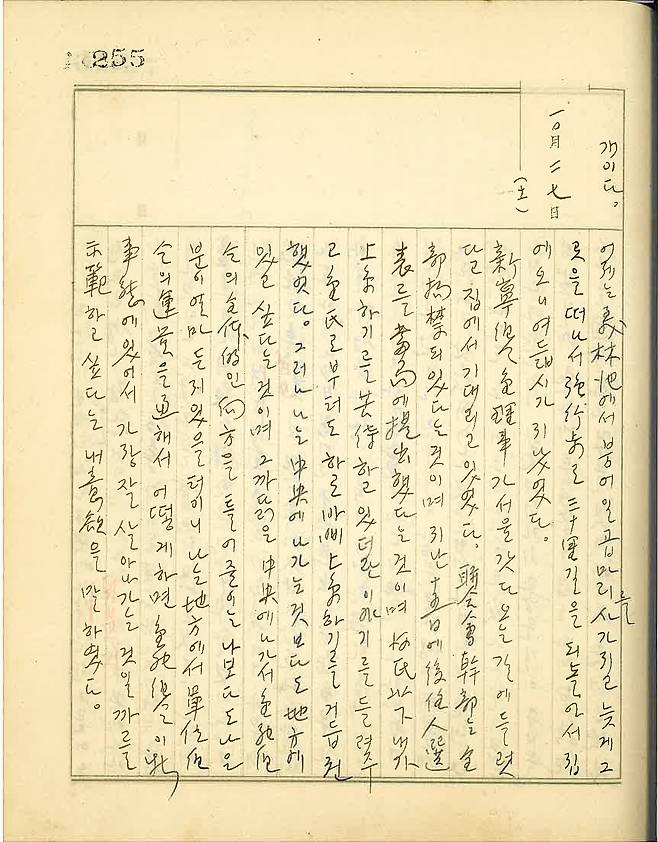 255
개이다。
一〇月 二七日
(土)
어제는 義林池에서 붕어 일곱 마리를 사가지고 늦게 그
곳을 떠나서 強行 三十里길을 되돌아서 집
에 오니 여듧시가 지났었다。
新寧 金理事가 서울 갔다 오는 길에 들렸
다고 집에서 기대리고 있었다。聯合會幹部는 全
部 拘禁되 있다는 것이며 지난 十五日에 後任人選
表를 當局에 提出했다는 것이며 朴氏以下 내가
上京하기를 苦待하고 있더란 이야기를 들려주
고 金氏로부터도 하로 바삐 上京하기를 거듭 권
했었다。그러나 나는 中央에 나가는 것보다도 地方에
있고 싶다는 것이며 그까닭은 中央에 나가서 金融組
合의 全体的인 向方을 틀어줄 이는 나보다도 나은
분이 얼마든지 있을 터이니 나는 地方에서 單位組
合의 運營을 通해서 어떻게 하면 金融組合이 新
事態에 있어서 가장 잘 살아가는 것일까를
示範하고 싶다는 내 意欲을 말하였다。